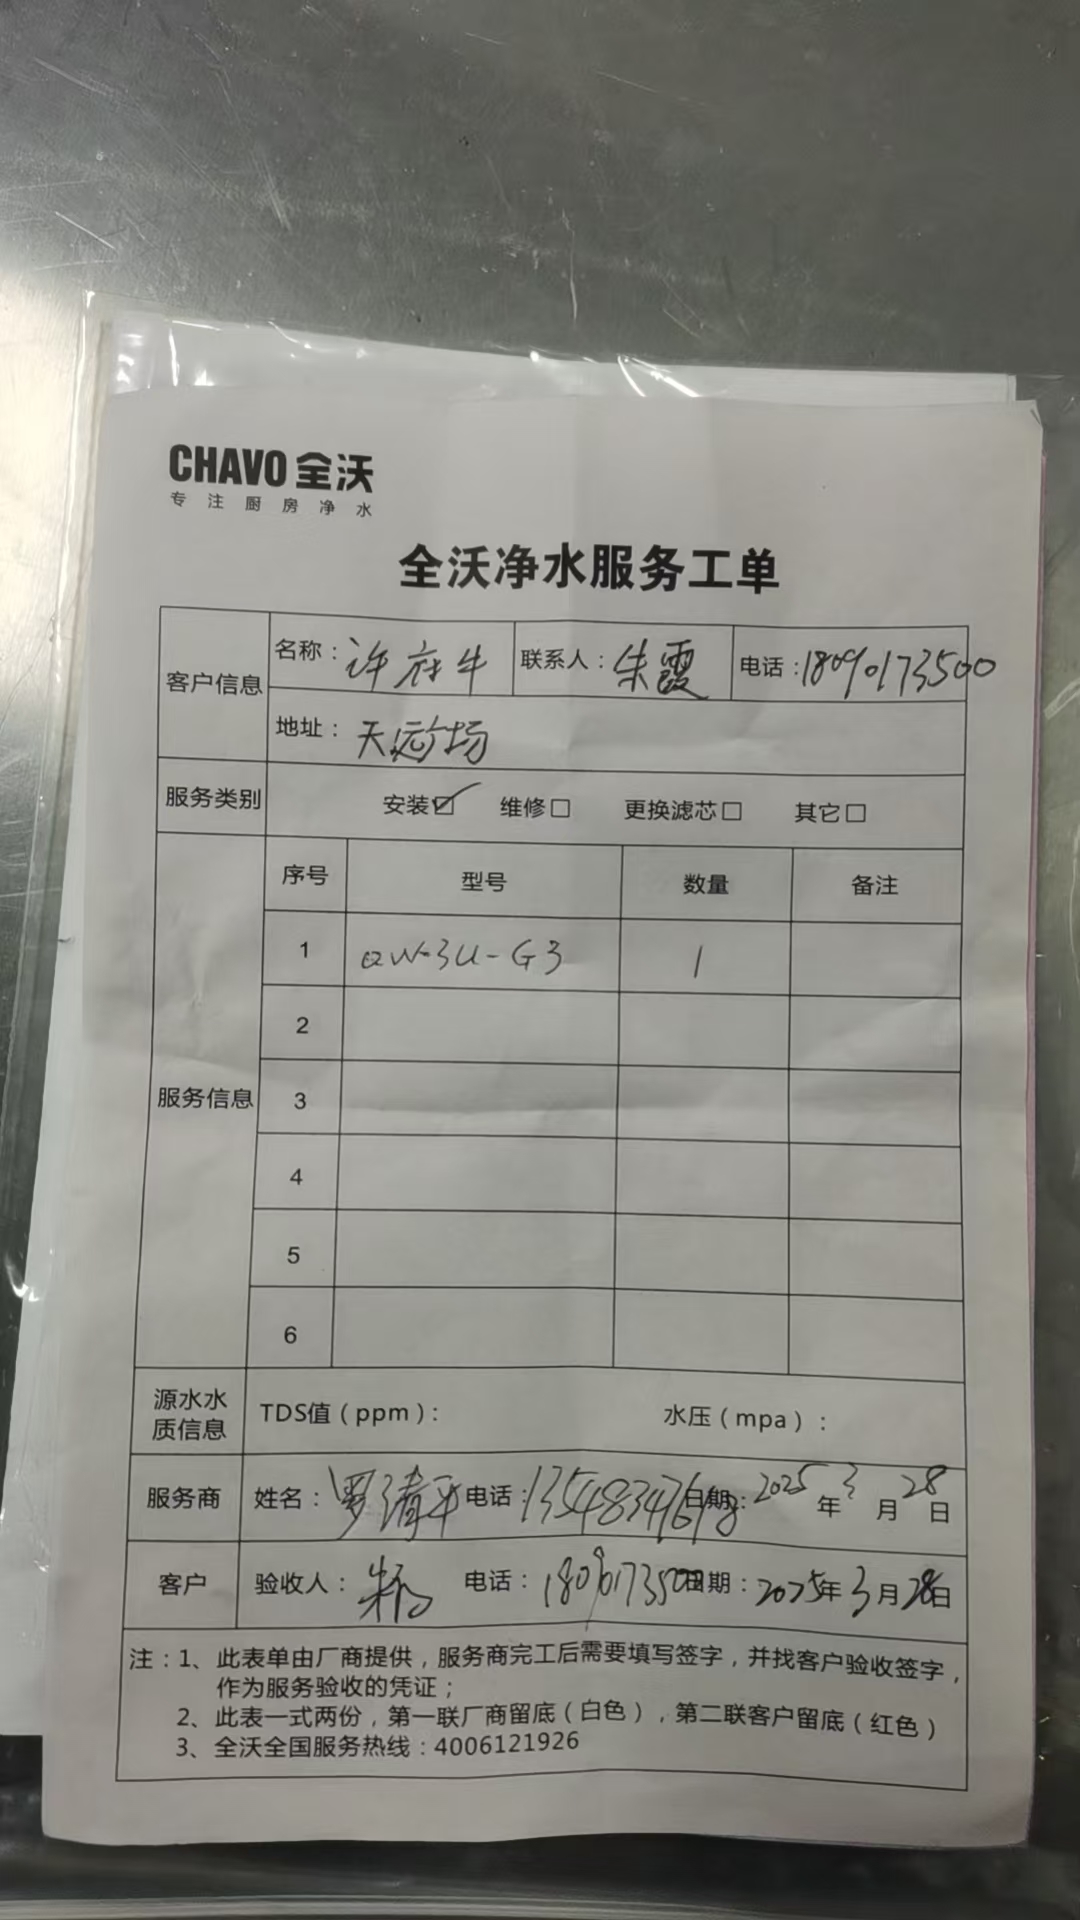 CHAVO 全沃
专注厨房净水
全沃净水服务工单
客户信息
名称：许府牛 联系人：朱霞 电话：18090173500
地址：天远场
服务类别 安装☑ 维修□ 更换滤芯□ 其它□
服务信息
序号 型号 数量 备注
1 QW-3U-G3 1
2
3
4
5
6
源水水质信息 TDS值（ppm）： 水压（mpa）：
服务商 姓名：罗清平 电话： 日期：2025年3月28日
客户 验收人： 电话：18090173500 日期：2025年3月28日
注：1、此表单由厂商提供，服务商完工后需要填写签字，并找客户验收签字，
作为服务验收的凭证；
2、此表一式两份，第一联厂商留底（白色），第二联客户留底（红色）
3、全沃全国服务热线：4006121926